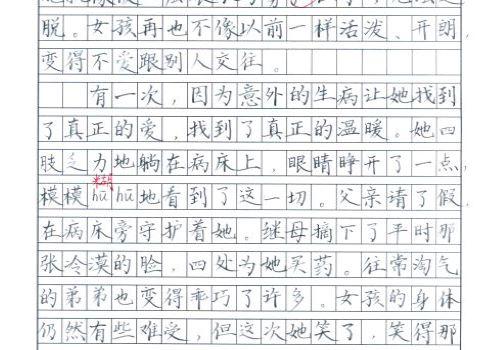 脱。女孩再也不像以前一样活泼、开朗,
变得不爱跟别人交往。
有一次,因为意外的生病让她找到
了真正的爱,找到了真正的温暖。她四
肢乏力地躺在病床上,眼睛睁开了一点,
糊
模模hūhū地看到了这一切。父亲请了假,
在病床旁守护着她。继母摘下了平时那
张冷漠的脸,四处为她买药。往常淘气
的弟弟也变得乖巧了许多。女孩的身体
仍然有些难受,但这次她笑了,笑得那